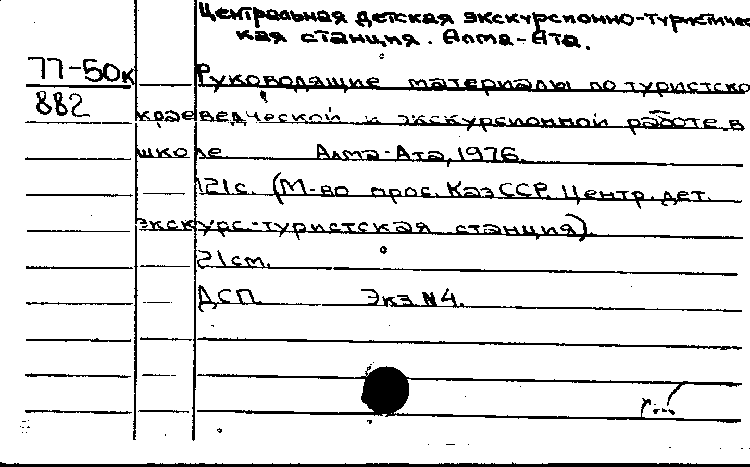 Центральная детская экскурсионно-туристичес
кая станция. Алма-Ата.
77-50к Руководящие материалы по туристско
882 краеведческой и экскурсионной работе в
школе. Алма-Ата, 1976.
121с. (М-во прос. КазССР. Центр. дет.
экскурс.-туристская станция).
21см.
ДСП. Экз №4.